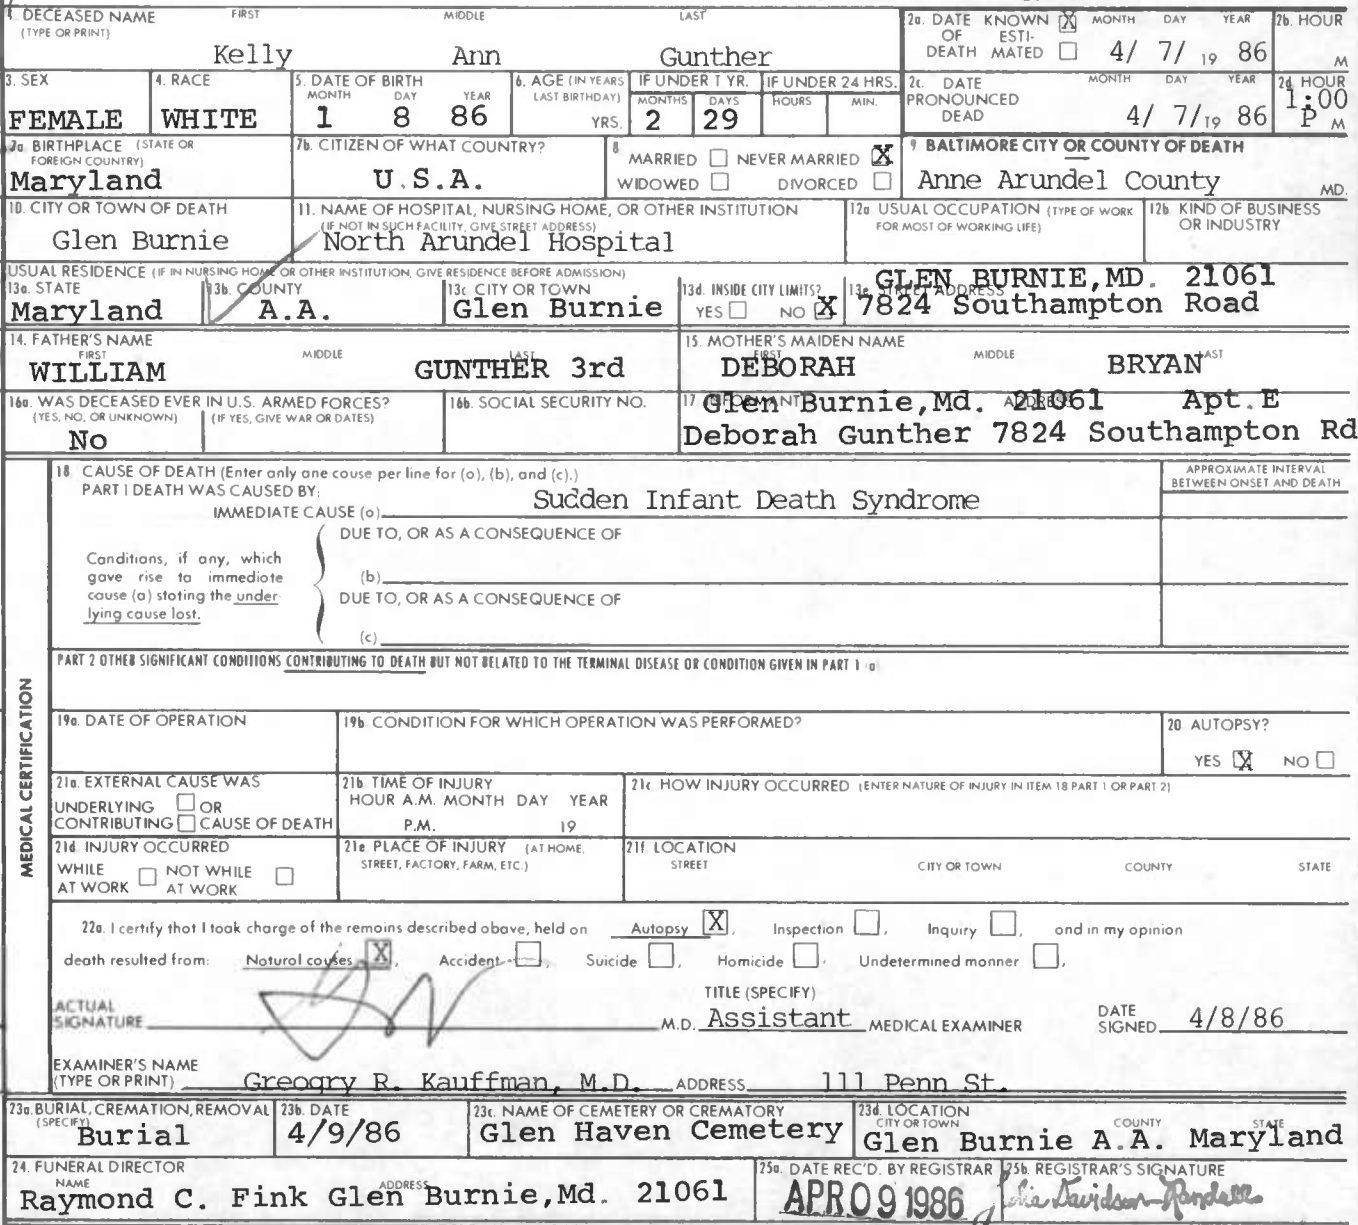 1. DECEASED NAME FIRST MIDDLE LAST
(TYPE OR PRINT)
Kelly Ann Gunther
2a. DATE KNOWN X MONTH DAY YEAR
OF ESTI-
DEATH MATED 4/ 7/ 19 86
2b. HOUR
M
3. SEX
FEMALE
4. RACE
WHITE
5. DATE OF BIRTH
MONTH DAY YEAR
1 8 86
6. AGE (IN YEARS
LAST BIRTHDAY)
YRS.
IF UNDER 1 YR.
MONTHS DAYS
2 29
IF UNDER 24 HRS.
HOURS MIN.
2c. DATE MONTH DAY YEAR
PRONOUNCED
DEAD 4/ 7/ 19 86
2d HOUR
1:00
P M
7a BIRTHPLACE (STATE OR
FOREIGN COUNTRY)
Maryland
7b. CITIZEN OF WHAT COUNTRY?
U.S.A.
8
MARRIED NEVER MARRIED X
WIDOWED DIVORCED
9 BALTIMORE CITY OR COUNTY OF DEATH
Anne Arundel County MD.
10. CITY OR TOWN OF DEATH
Glen Burnie
11. NAME OF HOSPITAL, NURSING HOME, OR OTHER INSTITUTION
(IF NOT IN SUCH FACILITY, GIVE STREET ADDRESS)
North Arundel Hospital
12a USUAL OCCUPATION (TYPE OF WORK
FOR MOST OF WORKING LIFE)
12b. KIND OF BUSINESS
OR INDUSTRY
USUAL RESIDENCE (IF IN NURSING HOME OR OTHER INSTITUTION, GIVE RESIDENCE BEFORE ADMISSION)
13a. STATE
Maryland
13b. COUNTY
A.A.
13c CITY OR TOWN
Glen Burnie
13d. INSIDE CITY LIMITS?
YES NO X
13e STREET ADDRESS
GLEN BURNIE,MD. 21061
7824 Southampton Road
14. FATHER'S NAME
FIRST MIDDLE LAST
WILLIAM GUNTHER 3rd
15. MOTHER'S MAIDEN NAME
FIRST MIDDLE LAST
DEBORAH BRYAN
16a. WAS DECEASED EVER IN U.S. ARMED FORCES?
(YES, NO, OR UNKNOWN) (IF YES, GIVE WAR OR DATES)
No
16b. SOCIAL SECURITY NO.
17 INFORMANT ADDRESS
Glen Burnie,Md. 21061 Apt.E
Deborah Gunther 7824 Southampton Rd
MEDICAL CERTIFICATION
18 CAUSE OF DEATH (Enter only one cause per line for (a), (b), and (c).)
PART I DEATH WAS CAUSED BY:
IMMEDIATE CAUSE (a) Sudden Infant Death Syndrome
APPROXIMATE INTERVAL
BETWEEN ONSET AND DEATH
DUE TO, OR AS A CONSEQUENCE OF
Conditions, if any, which
gave rise to immediate
cause (a) stating the under-
lying cause last.
(b)
DUE TO, OR AS A CONSEQUENCE OF
(c)
PART 2 OTHER SIGNIFICANT CONDITIONS CONTRIBUTING TO DEATH BUT NOT RELATED TO THE TERMINAL DISEASE OR CONDITION GIVEN IN PART 1 (a)
19a. DATE OF OPERATION
19b CONDITION FOR WHICH OPERATION WAS PERFORMED?
20 AUTOPSY?
YES X NO
21a. EXTERNAL CAUSE WAS
UNDERLYING OR
CONTRIBUTING CAUSE OF DEATH
21b TIME OF INJURY
HOUR A.M. MONTH DAY YEAR
P.M. 19
21c HOW INJURY OCCURRED (ENTER NATURE OF INJURY IN ITEM 18 PART 1 OR PART 2)
21d INJURY OCCURRED
WHILE NOT WHILE
AT WORK AT WORK
21e PLACE OF INJURY (AT HOME,
STREET, FACTORY, FARM, ETC.)
21f. LOCATION
STREET CITY OR TOWN COUNTY STATE
22a. I certify that I took charge of the remains described above, held on Autopsy X, Inspection , Inquiry , and in my opinion
death resulted from: Natural causes X, Accident , Suicide , Homicide , Undetermined manner ,
ACTUAL
SIGNATURE M.D.
TITLE (SPECIFY)
Assistant MEDICAL EXAMINER
DATE
SIGNED 4/8/86
EXAMINER'S NAME
(TYPE OR PRINT) Greogry R. Kauffman, M.D. ADDRESS 111 Penn St.
23a. BURIAL, CREMATION, REMOVAL
(SPECIFY)
Burial
23b. DATE
4/9/86
23c. NAME OF CEMETERY OR CREMATORY
Glen Haven Cemetery
23d. LOCATION
CITY OR TOWN COUNTY STATE
Glen Burnie A.A. Maryland
24. FUNERAL DIRECTOR
NAME ADDRESS
Raymond C. Fink Glen Burnie,Md. 21061
25a. DATE REC'D. BY REGISTRAR
APR 09 1986
25b. REGISTRAR'S SIGNATURE
Julia Davidson-Randall